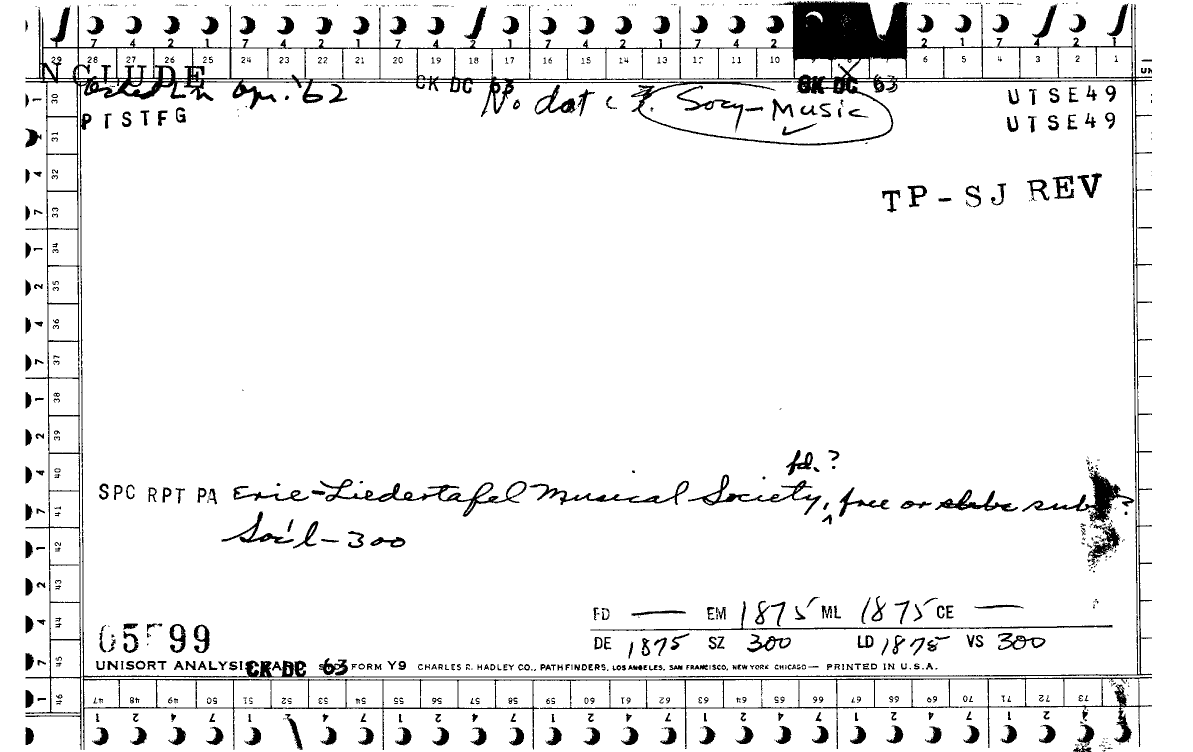 7 4 2 1 7 4 2 1 7 4 2 1 7 4 2 1 7 4 2 1 2 1 7 4 2 1
29 28 27 26 25 24 23 22 21 20 19 18 17 16 15 14 13 12 11 10 6 5 4 3 2 1
NCLUDE
CK DC 63
CK DC 63
Apr. '62
No date Socy-Music
UTSE49
PTSTFG
UTSE49
TP-SJ REV
30
31
32
33
34
35
36
37
38
39
40
41
42
43
44
45
46
fd. ?
SPC RPT PA Erie-Liedertafel Musical Society, free or subs sub ?
Soc'l-300
FD — EM 1875 ML 1875 CE —
DE 1875 SZ 300 LD 1875 VS 300
05 99
UNISORT ANALYSIS CARD FORM Y9 CHARLES R. HADLEY CO., PATHFINDERS, LOS ANGELES, SAN FRANCISCO, NEW YORK CHICAGO — PRINTED IN U.S.A.
CK DC 63
47 48 49 50 51 52 53 54 55 56 57 58 59 60 61 62 63 64 65 66 67 68 69 70 71 72 73
1 2 4 7 1 2 4 7 1 2 4 7 1 2 4 7 1 2 4 7 1 2 4 7 1 2 4 7